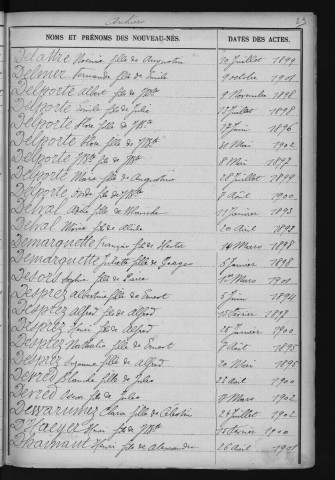 23
NOMS ET PRÉNOMS DES NOUVEAU-NÉS. DATES DES ACTES.
Delattre fille de Augustin 10 Juillet 1899
Delmer Fernande fille de Emile 9 octobre 1901
Delporte Albert fils de 9 Novembre 1898
Delporte Emile fils de Jules Juillet 1898
Delporte Flore fille de 17 Juin 1896
Delporte fille de Mai 1902
Delporte fils de 8 Mai 1897
Delporte Marie fille de Augustin 28 Juillet 1899
Delporte fils de Août 1900
Delval fille de Blanche Janvier 1893
Delval Marie fille de 20 Avril 1893
Demarquette François fils de 14 Mars 1898
Demarquette Juliette fille de Georges 6 Janvier 1898
Desors Sophie fille de Pierre 1er Mars 1901
Desprez Albertine fille de Ernest 5 Juin 1894
Desprez Alfred fils de Alfred Février 1897
Desprez Henri fils de Alfred 25 Janvier 1900
Desprez Nathalie fille de Ernest 7 Août 1895
Desprez Suzanne fille de Alfred 20 Mai 1895
Devred Blanche fille de Jules 22 Août 1900
Devred fils de Jules 17 Mars 1902
Dewarumez Clara fille de Célestin 27 Juillet 1902
D'Haeyer Henri fils de Février 1900
Dhainaut Henri fils de Alexandre 26 Août 1901